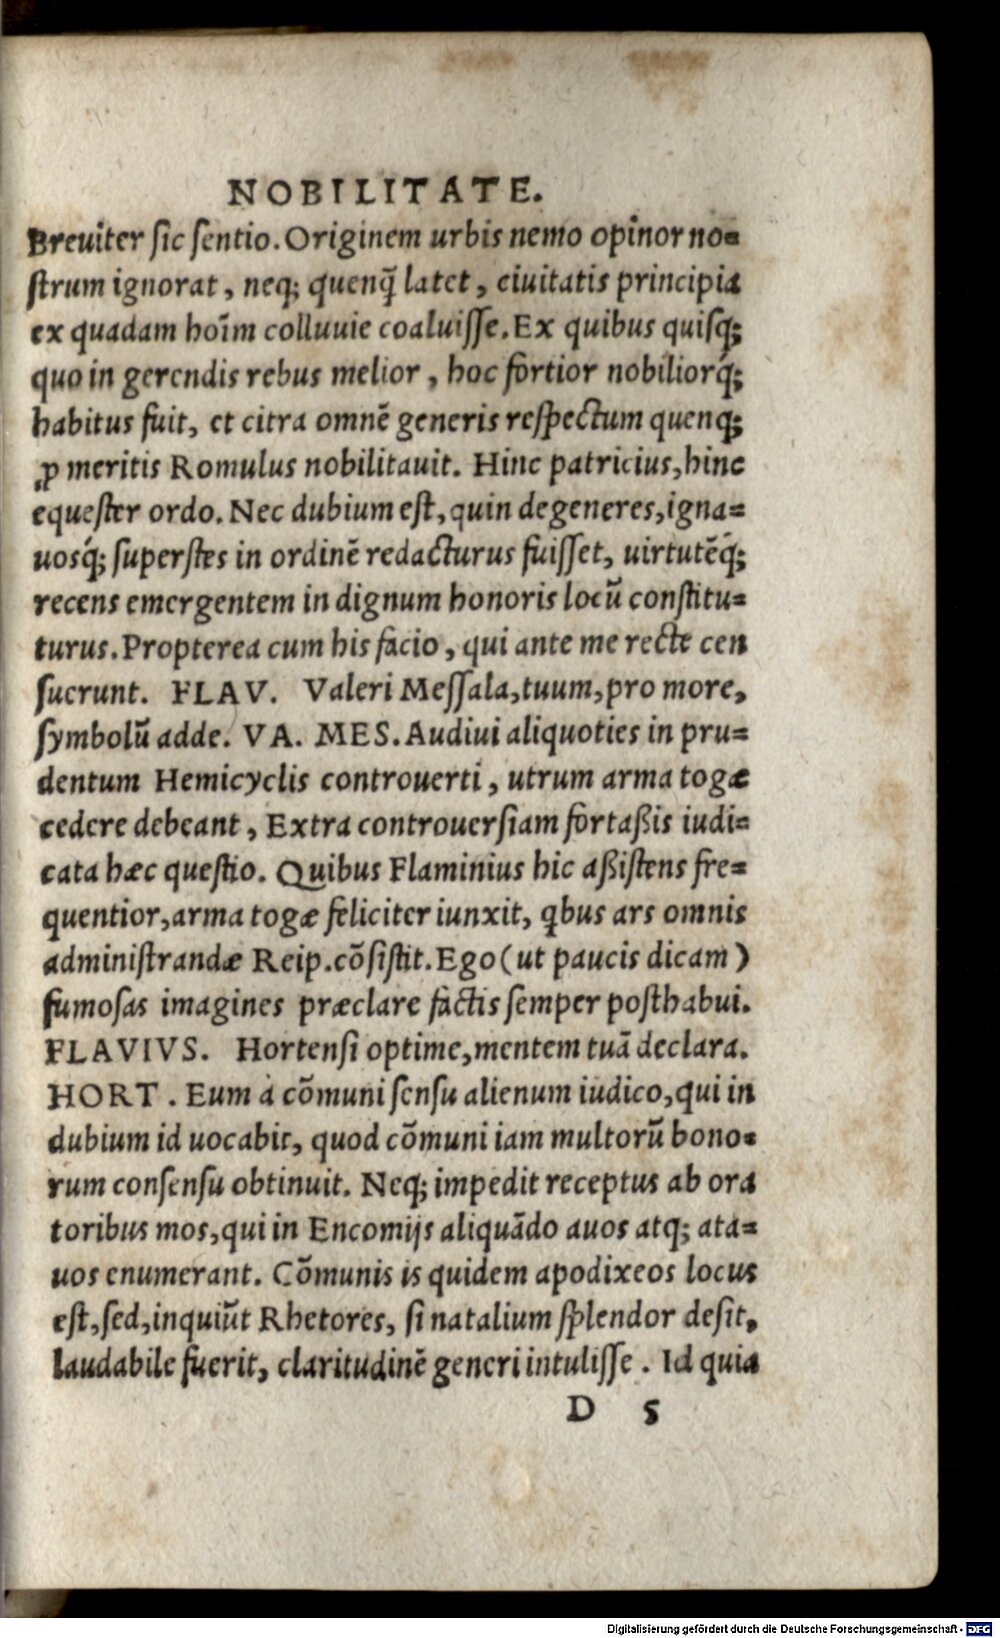 NOBILITATE.
Breuiter sic sentio. Originem urbis nemo opinor no=
strum ignorat, neq; quenq̃ latet, ciuitatis principia
ex quadam hoĩm colluuie coaluisse. Ex quibus quisq́;
quo in gerendis rebus melior, hoc fortior nobiliorq́;
habitus fuit, et citra omnẽ generis respectum quenq;
ꝓ meritis Romulus nobilitauit. Hinc patricius, hinc
equester ordo. Nec dubium est, quin degeneres, igna=
uosq́; superstes in ordinẽ redacturus fuisset, uirtutẽq́;
recens emergentem in dignum honoris locũ constitu=
turus. Propterea cum his facio, qui ante me recte cen
suerunt. FLAV. Valeri Messala, tuum, pro more,
symbolũ adde. VA. MES. Audiui aliquoties in pru=
dentum Hemicyclis controuerti, utrum arma togæ
cedere debeant, Extra controuersiam fortaßis iudi=
cata hæc questio. Quibus Flaminius hic aßistens fre=
quentior, arma togæ feliciter iunxit, qbus ars omnis
administrandæ Reip. cõsistit. Ego (ut paucis dicam)
fumosas imagines præclare factis semper posthabui.
FLAVIVS. Hortensi optime, mentem tuã declara.
HORT. Eum à cõmuni sensu alienum iudico, qui in
dubium id uocabit, quod cõmuni iam multorũ bono=
rum consensu obtinuit. Neq; impedit receptus ab ora
toribus mos, qui in Encomijs aliquãdo auos atq; ata=
uos enumerant. Cõmunis is quidem apodixeos locus
est, sed, inquiũt Rhetores, si natalium splendor desit,
laudabile fuerit, claritudinẽ generi intulisse. Id quia
D 5
Digitalisierung gefördert durch die Deutsche Forschungsgemeinschaft - DFG